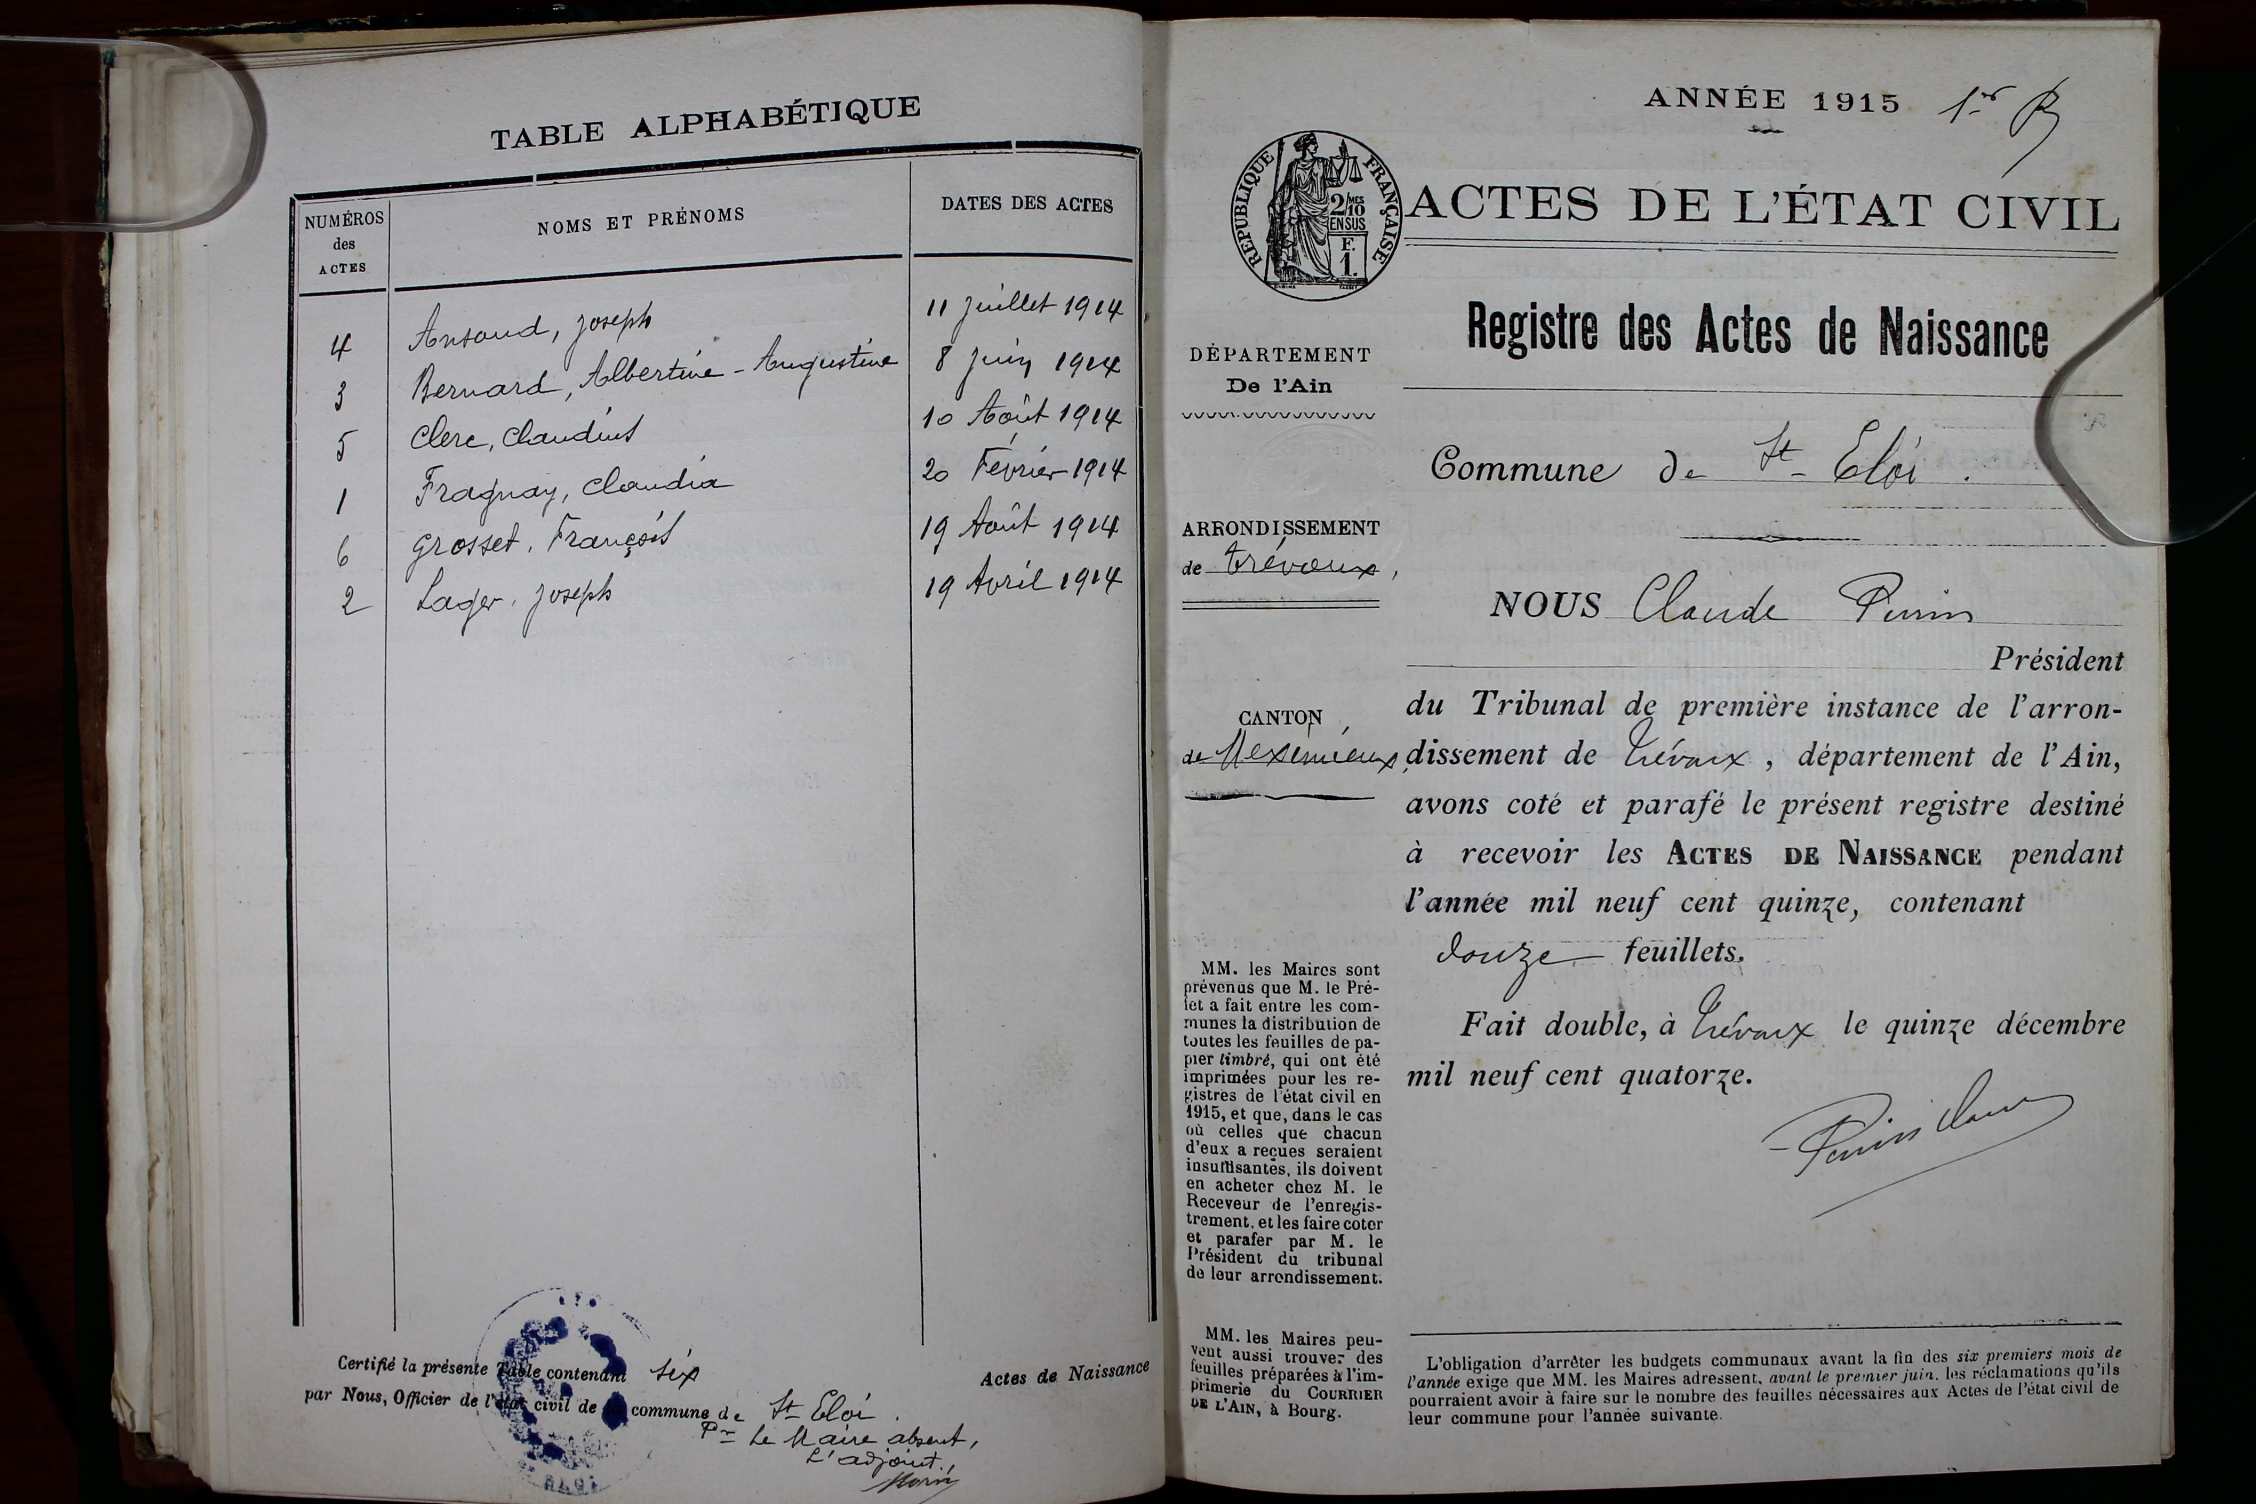 TABLE ALPHABÉTIQUE
NUMÉROS
des
ACTES
NOMS ET PRÉNOMS
DATES DES ACTES
4 Ansoud, Joseph 11 Juillet 1914
3 Bernard, Albertine - Augustine 8 Juin 1914
5 Clerc, Claudius 10 Août 1914
1 Fragnay, Claudia 20 Février 1914
6 Grosset, François 19 Août 1914
2 Lager, Joseph 19 Avril 1914
Certifié la présente Table contenant six Actes de Naissance
par Nous, Officier de l'état civil de la commune de St Eloi.
Pr Le Maire absent,
L'adjoint,
ANNÉE 1915 1er
RÉPUBLIQUE FRANÇAISE
2/10MES
EN SUS
F.
1.
ACTES DE L'ÉTAT CIVIL
Registre des Actes de Naissance
DÉPARTEMENT
De l'Ain
Commune de St Eloi.
ARRONDISSEMENT
de Trévoux,
CANTON
de Meximieux,
NOUS Claude Perrin
Président
du Tribunal de première instance de l'arron-
dissement de Trévoux, département de l'Ain,
avons coté et parafé le présent registre destiné
à recevoir les ACTES DE NAISSANCE pendant
l'année mil neuf cent quinze, contenant
douze feuillets.
Fait double, à Trévoux le quinze décembre
mil neuf cent quatorze.
MM. les Maires sont
prévenus que M. le Pré-
fet a fait entre les com-
munes la distribution de
toutes les feuilles de pa-
pier timbré, qui ont été
imprimées pour les re-
gistres de l'état civil en
1915, et que, dans le cas
où celles que chacun
d'eux a reçues seraient
insuffisantes, ils doivent
en acheter chez M. le
Receveur de l'enregis-
trement, et les faire coter
et parafer par M. le
Président du tribunal
de leur arrondissement.
MM. les Maires peu-
vent aussi trouver des
feuilles préparées à l'im-
primerie du COURRIER
DE L'AIN, à Bourg.
L'obligation d'arrêter les budgets communaux avant la fin des six premiers mois de
l'année exige que MM. les Maires adressent, avant le premier juin, les réclamations qu'ils
pourraient avoir à faire sur le nombre des feuilles nécessaires aux Actes de l'état civil de
leur commune pour l'année suivante.